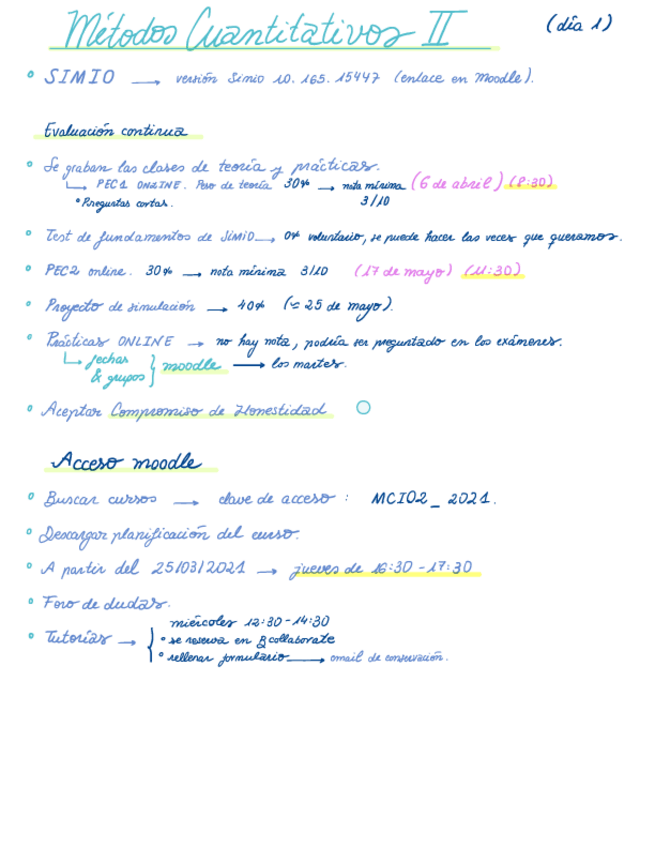 Métodos Cuantitativos II (día 1)
° SIMIO → versión Simio 10.165.15447 (enlace en Moodle).
Evaluación continua
° Se graban las clases de teoría y prácticas.
PEC1 ONLINE. Peso de teoría 30% → nota mínima (6 de abril) (8:30)
° Preguntas cortas. 3/10
° Test de fundamentos de SIMIO → 0% voluntario, se puede hacer las veces que queramos.
° PEC2 online. 30% → nota mínima 3/10 (17 de mayo) (11:30)
° Proyecto de simulación → 40% (≈ 25 de mayo).
° Prácticas ONLINE → no hay nota, podría ser preguntado en los exámenes.
fechas & grupos } moodle → los martes.
° Aceptar Compromiso de Honestidad
Acceso moodle
° Buscar cursos → clave de acceso : MCIO2_2021.
° Descargar planificación del curso.
° A partir del 25/03/2021 → jueves de 16:30-17:30
° Foro de dudas.
miércoles 12:30-14:30
° Tutorías → { ° se reserva en Bcollaborate
° rellenar formulario → email de conservación.